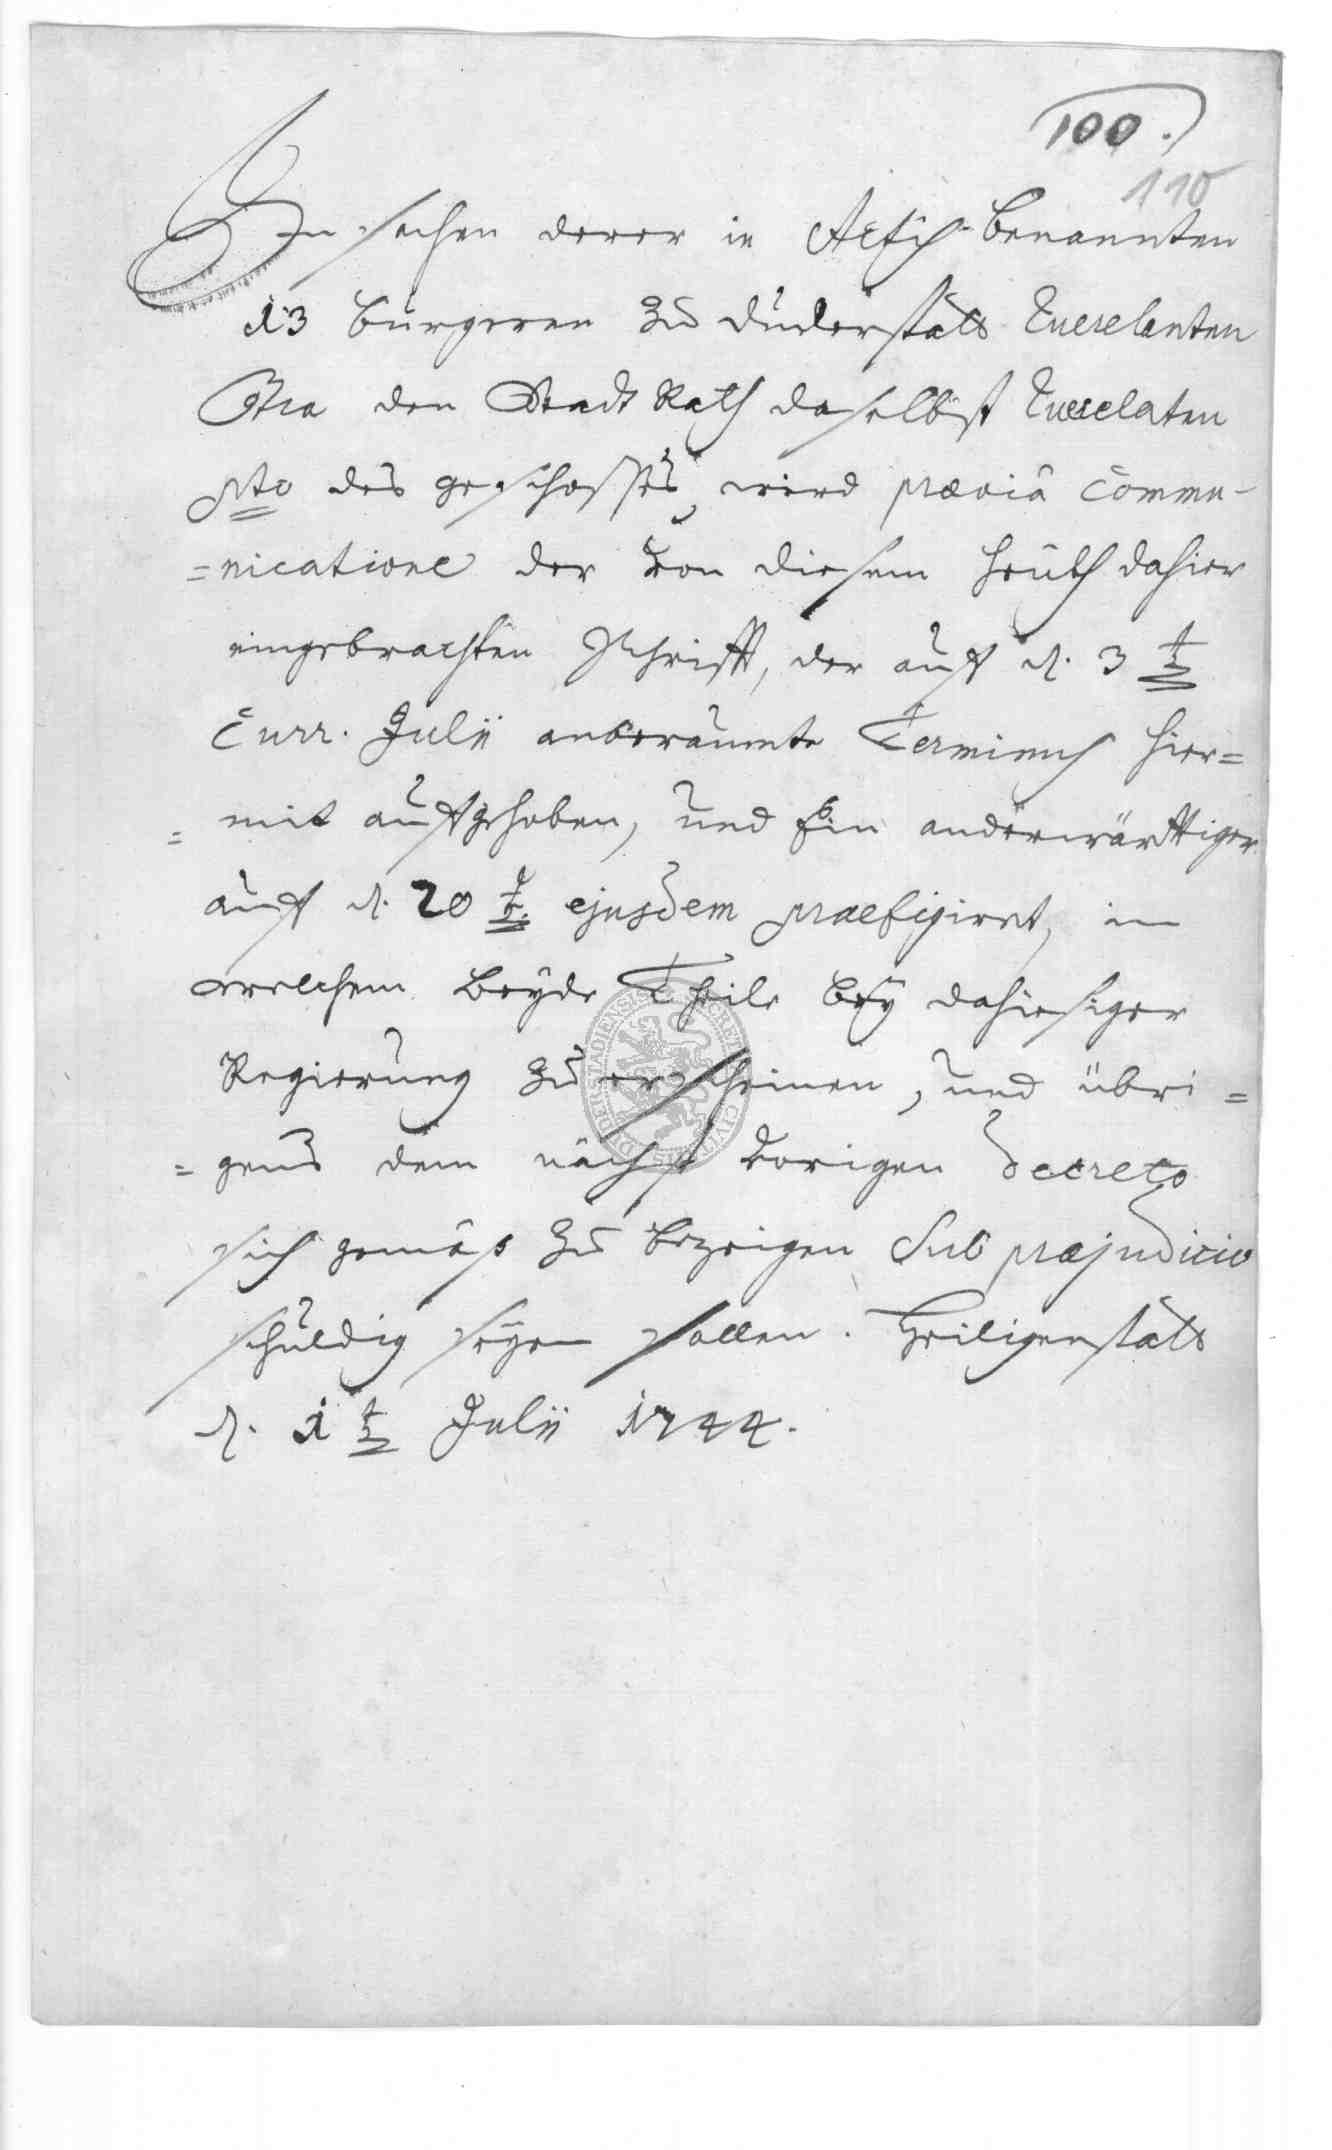 100.
110
In sachen derer in Actis benannten
13 bürgeren zu duderstatt Querelanten
Ctra den Stadt Rath daselbst Querelaten
pto des geschosses, wird praeviâ commu-
=nicatione der von diesem heuth dahier
eingebrachten Schrifft, der auff d. 3t
Curr. Julii anberaumte Terminus hier=
=mit auffgehoben, und ein anderwärttiger
auff d. 20t. ejusdem praefigiret, in
welchem beyde Theile bey dahiesiger
Regierung zu erscheinen, und übri=
=gens dem nächst vorigen decreto
sich gemäß zu bezeigen sub praejudicio
schuldig seyn sollen. Heiligenstatt
d. 1t Julii 1744.